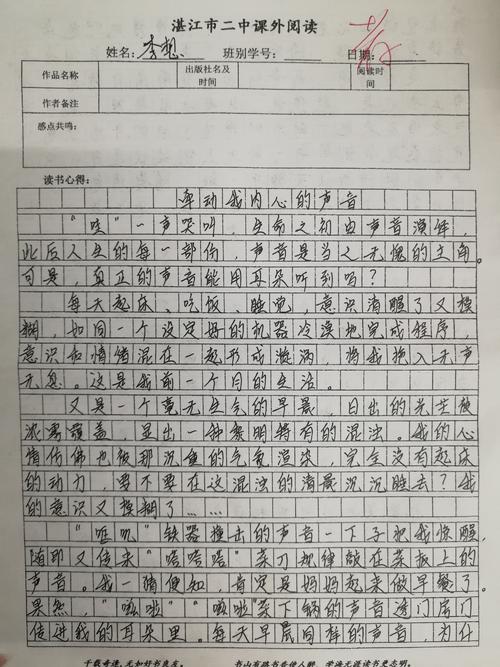 湛江市二中课外阅读
姓名: 李想 班别学号: 日期:
作品名称 出版社名及时间 阅读时间
作者备注
感点共鸣:
读书心得:
牵动我内心的声音
“哇”一声哭叫,生命之初由声音演绎,
此后人生的每一部份,声音是当之无愧的主角。
可是,真正的声音能用耳朵听到吗?
每天起床、吃饭、睡觉,意识清醒了又模
糊,如同一个设定好的机器冷漠地完成程序,
意识和情绪混在一起形成漩涡,将我拖入无声
无息。这是我前一个月的生活。
又是一个毫无生气的早晨,日出的光芒被
浓雾覆盖,显出一种黎明特有的混浊。我的心
情仿佛也被那沉重的气氛渲染,完全没有起床
的动力,要不要在这混浊的清晨沉沉睡去?我
的意识又模糊了……
“哐叽”铁器撞击的声音一下子把我惊醒,
随即又传来“嗒嗒嗒”菜刀规律敲在菜板上的
声音。我一猜便知,肯定是妈妈起来做早餐了。
果然,“嗞啦”“嗞啦”菜下锅的声音透门层门
传进我的耳朵里。每天早晨同样的声音,为什
千载奇逢,无如好书良友。 书山有路书奇侍人醉, 学海无涯读书史志明。